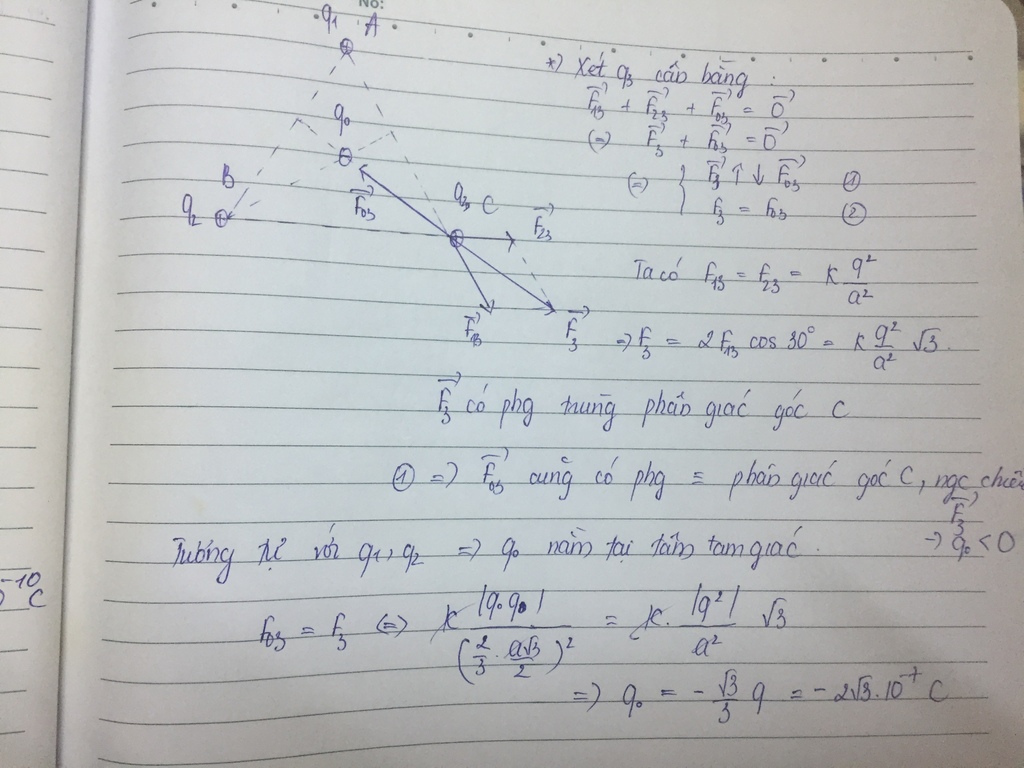 No:
q₁ A
q₀
B
q₂
q₃ C
F₀₃→
F₂₃→
F₁₃→
F₃→
*) Xét q₃ cân bằng :
F₁₃→ + F₂₃→ + F₀₃→ = 0→
(=) F₃→ + F₀₃→ = 0→
(=) { F₃→ ↑↓ F₀₃→ ①
F₃ = F₀₃ ②
Ta có F₁₃ = F₂₃ = k q²/a²
=> F₃ = 2F₁₃ cos 30° = k q²/a² √3.
F₃→ có phg trùng phân giác góc C
① => F₀₃→ cũng có phg ≡ phân giác góc C, ngc chiều
F₃→
Tương tự với q₁, q₂ => q₀ nằm tại tâm tam giác.
→ q₀ < 0
⁻¹⁰ C
F₀₃ = F₃ (=) k |q₀q₀| / (2/3 . a√3/2)² = k. |q²|/a² √3
=> q₀ = - √3/3 q = - 2√3.10⁻⁷ C